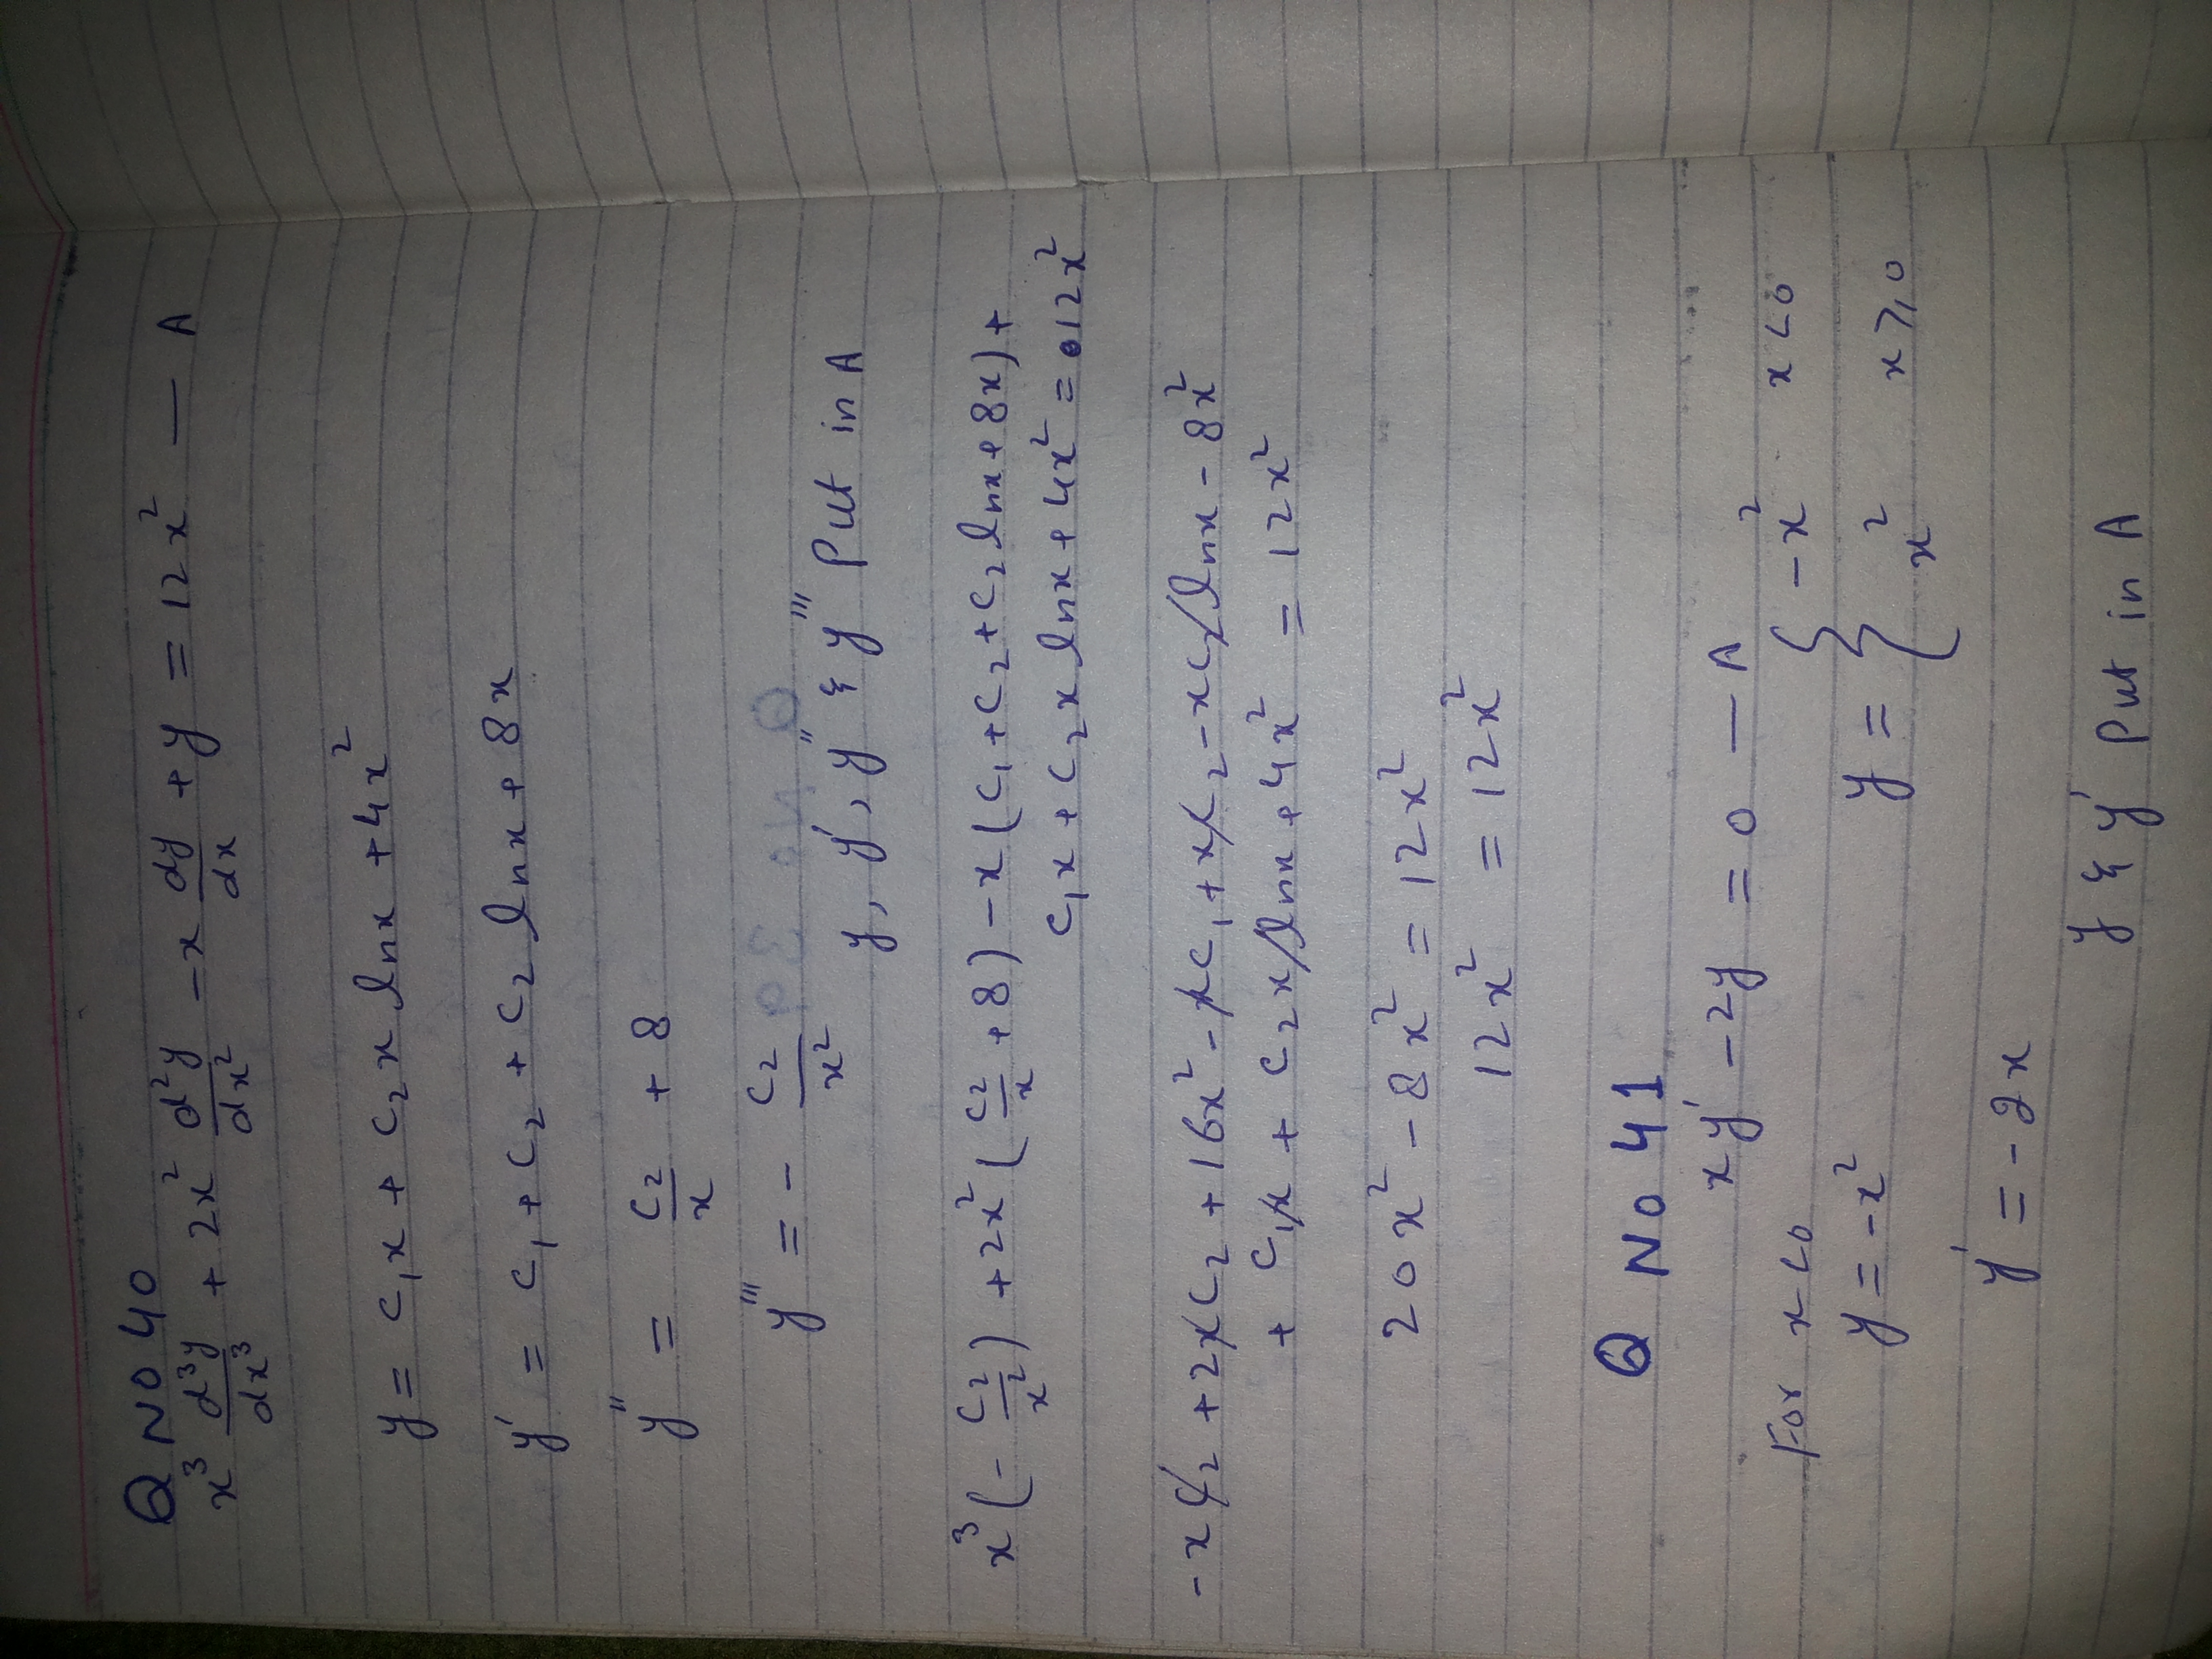 Q NO 40
x³ d³y/dx³ + 2x² d²y/dx² - x dy/dx + y = 12x² — A
y = c₁x + c₂x lnx + 4x²
y' = c₁ + c₂ + c₂ lnx + 8x
y'' = c₂/x + 8
y''' = - c₂/x²
y, y', y'' & y''' Put in A
x³(-c₂/x²) + 2x²(c₂/x + 8) - x(c₁ + c₂ + c₂ lnx + 8x) +
c₁x + c₂x lnx + 4x² = 12x²
-xc₂ + 2xc₂ + 16x² - xc₁ + xc₂ - xc₂ lnx - 8x²
+ c₁x + c₂x lnx + 4x² = 12x²
20x² - 8x² = 12x²
12x² = 12x²
Q NO 41
xy' - 2y = 0 — A
For x<0 y = { -x² x<0
y = -x² x² x≥0
y' = -2x
y & y' Put in A